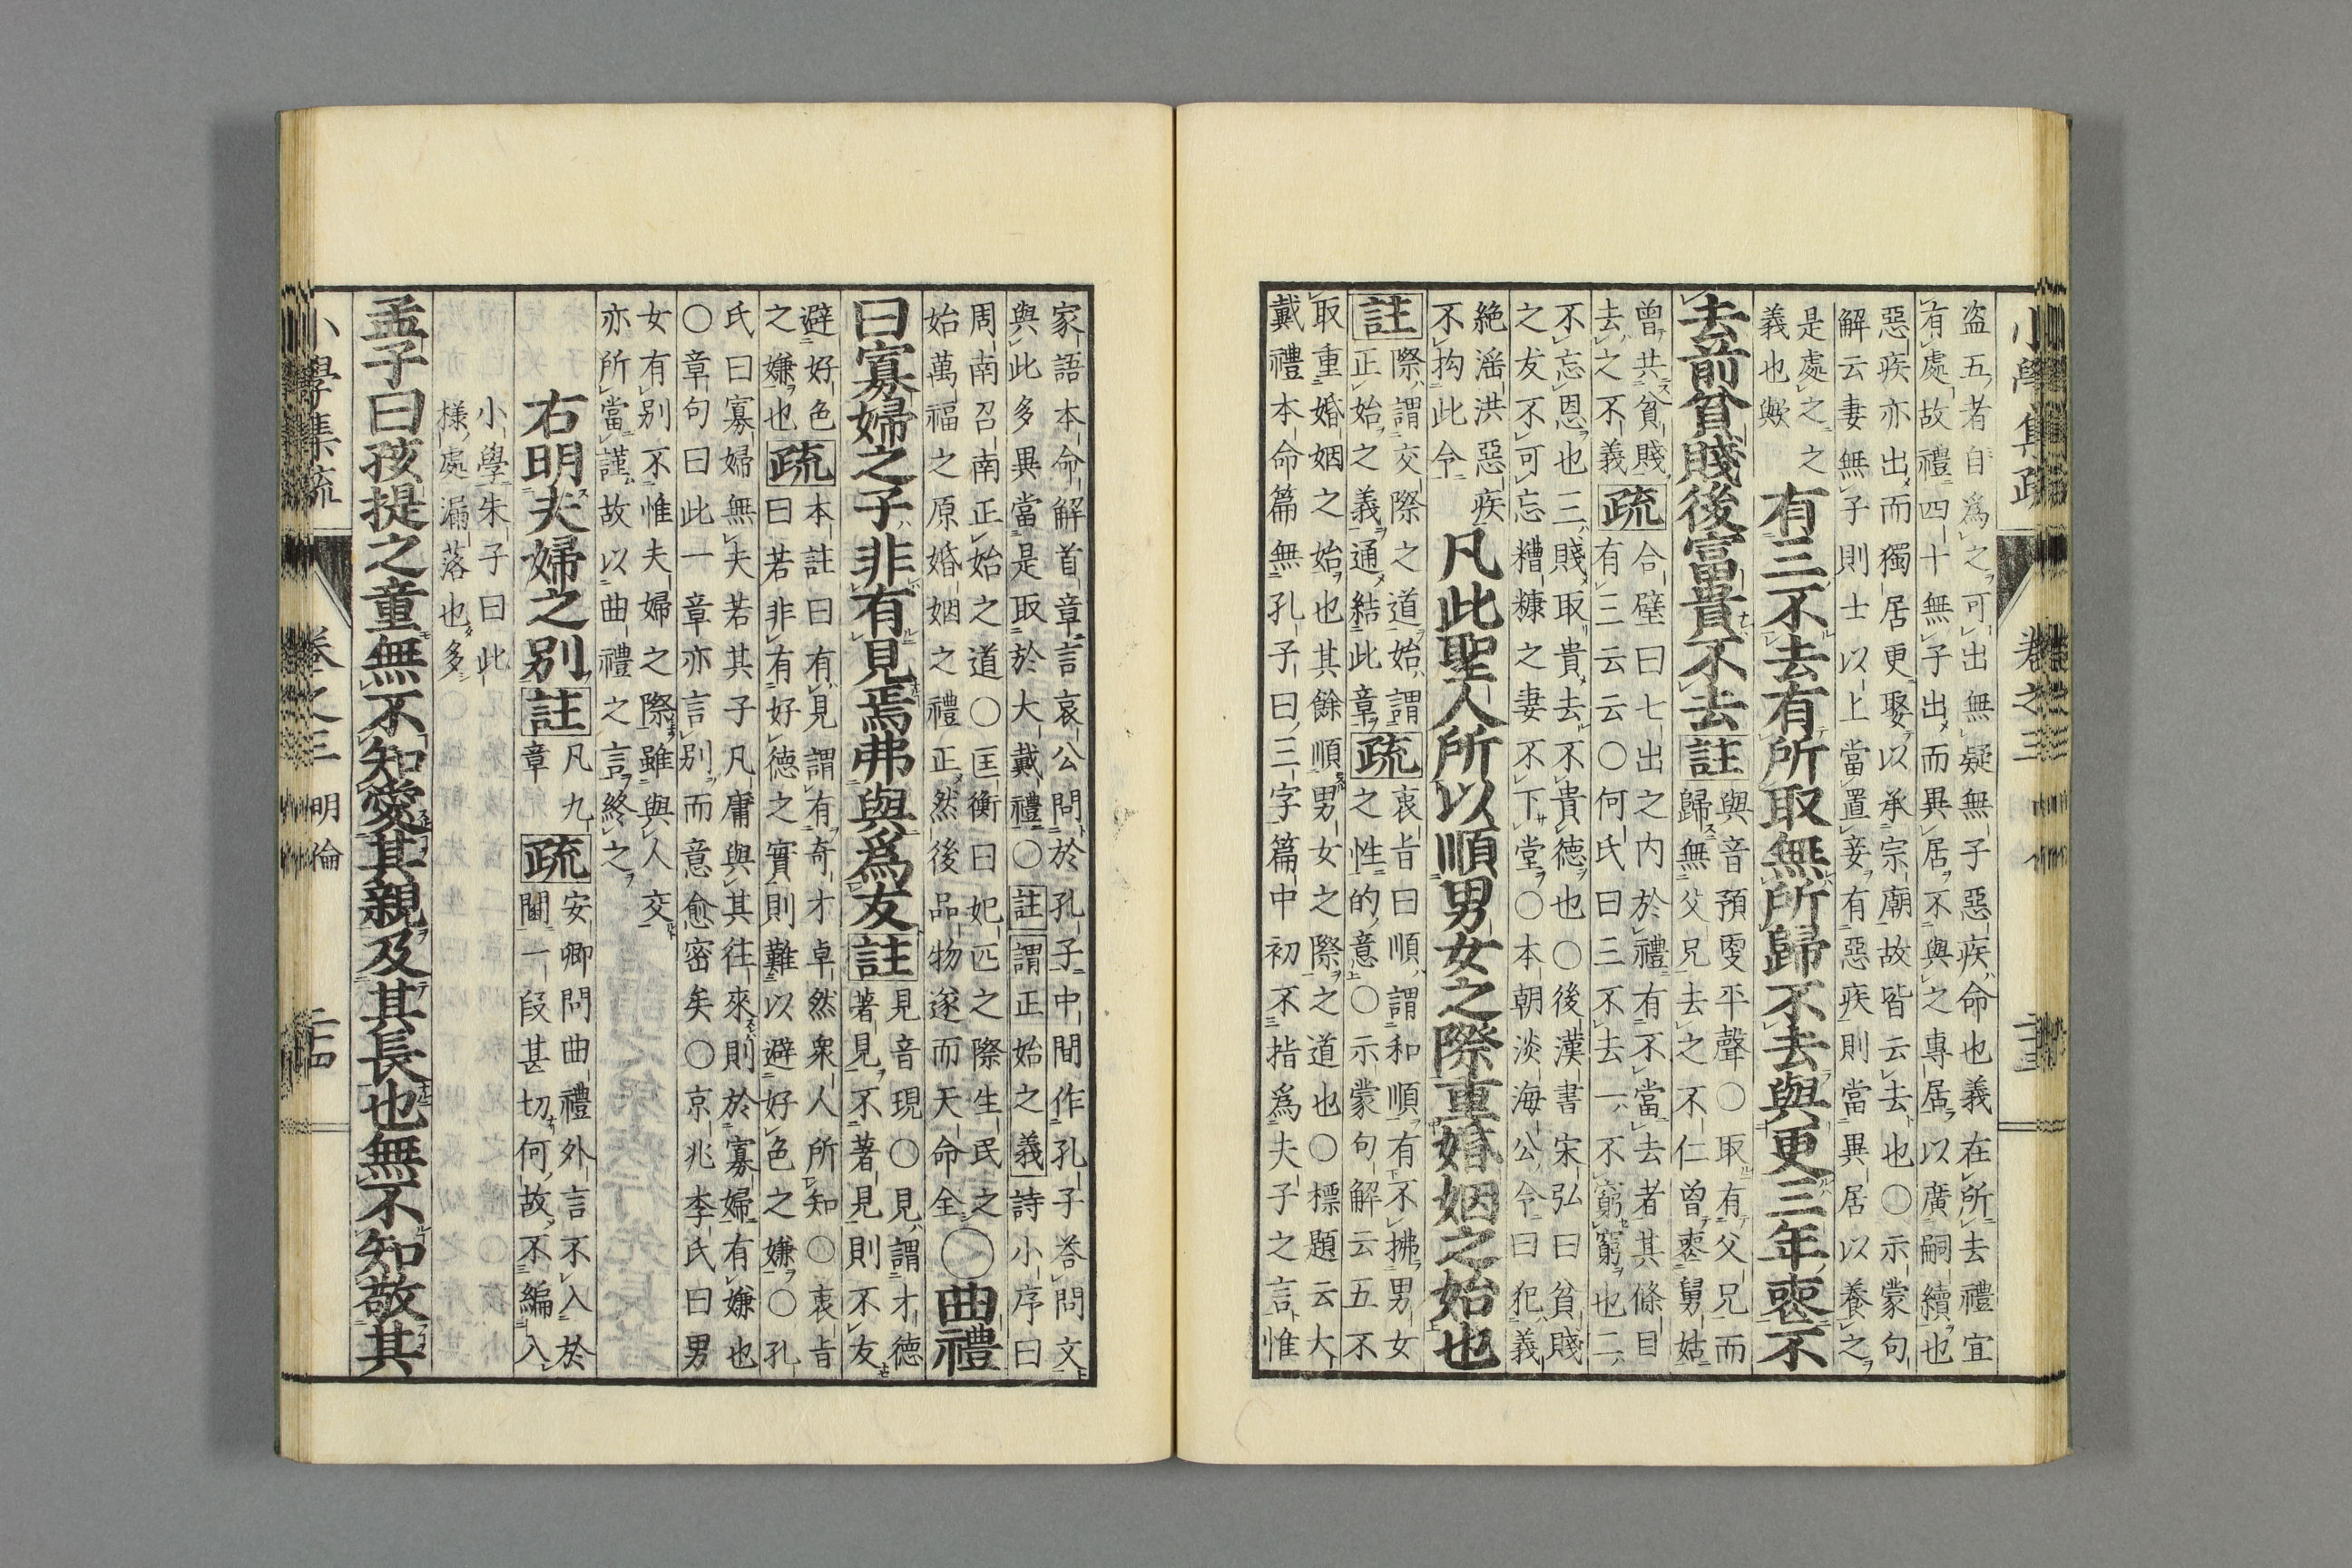 小學集疏 卷之三 二十三
盗五者自爲之可出無疑無子惡疾命也義在所去禮宜
有處故禮四十無子出而異居不與之專居以廣嗣續也
惡疾亦出而獨居更娶以承宗廟故皆云去也○示蒙句
解云妻無子則士以上當置妾有惡疾則當異居以養之
是處之之
義也歟
有三不去有所取無所歸不去與更三年喪不
去前貧賤後富貴不去註
與音預更平聲○取有父兄而
歸無父兄去之不仁曾喪舅姑
曾共貧賤
去之不義
疏
合璧曰七出之内於禮有不當去者其條目
有三云云○何氏曰三不去一不窮窮也二
不忘恩也三賤取貴去不貴德也○後漢書宋弘曰貧賤
之友不可忘糟糠之妻不下堂○本朝淡海公令曰犯義
絶淫洪惡疾
不拘此令
凡此聖人所以順男女之際重婚姻之始也
註
際謂交際之道始謂
正始之義通結此章
疏
衷旨曰順謂和順有不拂男女
之性的意○示蒙句解云五不
取重婚姻之始也其餘順男女之際之道也○標題云大
戴禮本命篇無孔子曰三字篇中初不指爲夫子之言惟
家語本命解首章言哀公問於孔子中間作孔子答問文
與此多異當是取於大戴禮○註謂正始之義詩小序曰
周南召南正始之道○匡衡曰妃匹之際生民之
始萬福之原婚姻之禮正然後品物遂而天命全
○曲禮
曰寡婦之子非有見焉弗與爲友註
見音現○見謂才德
著見不著見則不友
避好色
之嫌也
疏
本註曰有見謂有奇才卓然衆人所知○衷旨
曰若非有好德之實則難以避好色之嫌○孔
氏曰寡婦無夫若其子凡庸與其往來則於寡婦有嫌也
○章句曰此一章亦言別而意愈密矣○京兆李氏曰男
女有別不惟夫婦之際雖與人交
亦所當謹故以曲禮之言終之
右明夫婦之別註
凡九
章
疏
安卿問曲禮外言不入於
閫一段甚切何故不編入
小學朱子曰此
様處漏落也多
孟子曰孩提之童無不知愛其親及其長也無不知敬其
小學集疏 卷之三 明倫 二十四